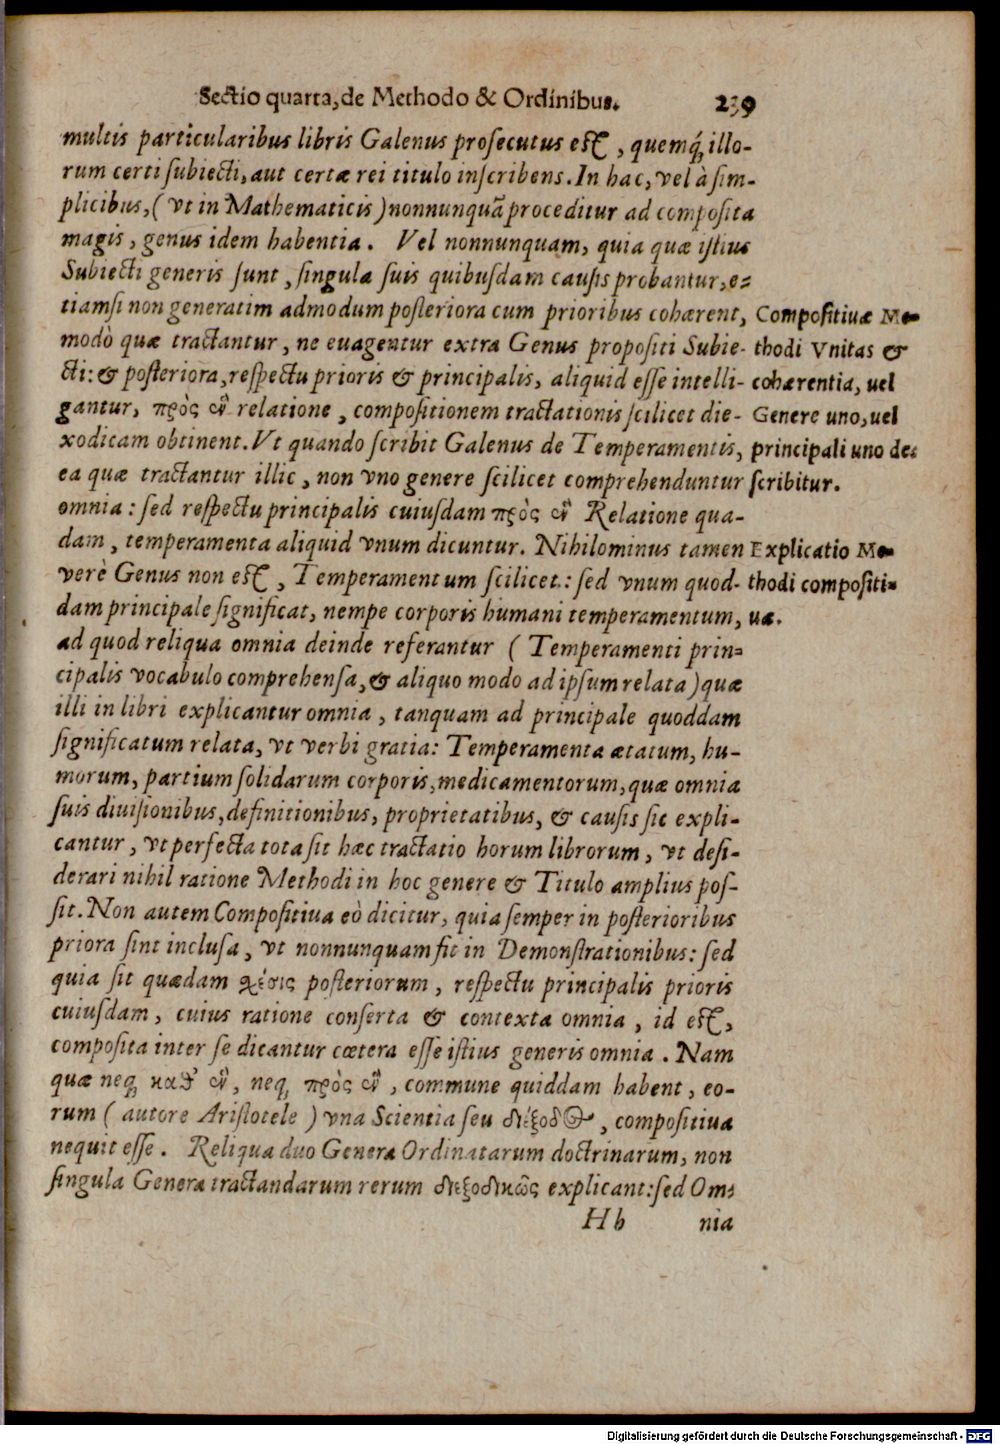 Sectio quarta, de Methodo & Ordinibus. 239
multis particularibus libris Galenus prosecutus est, quemq́; illo-
rum certi subiecti, aut certæ rei titulo inscribens. In hac, vel à sim-
plicibus, (vt in Mathematicis) nonnunquā proceditur ad composita
magis, genus idem habentia. Vel nonnunquam, quia quæ istius
Subiecti generis sunt, singula suis quibusdam causis probantur, e-
tiamsi non generatim admodum posteriora cum prioribus cohærent,
modò quæ tractantur, ne euagentur extra Genus propositi Subie-
cti: & posteriora, respectu prioris & principalis, aliquid esse intelli-
gantur, πρὸς ἓν relatione, compositionem tractationis scilicet die-
xodicam obtinent. Vt quando scribit Galenus de Temperamentis,
ea quæ tractantur illic, non vno genere scilicet comprehenduntur
omnia: sed respectu principalis cuiusdam πρὸς ἓν Relatione qua-
dam, temperamenta aliquid vnum dicuntur. Nihilominus tamen
verè Genus non est, Temperamentum scilicet: sed vnum quod-
dam principale significat, nempe corporis humani temperamentum,
ad quod reliqua omnia deinde referantur (Temperamenti prin-
cipalis vocabulo comprehensa, & aliquo modo ad ipsum relata) quæ
illi in libri explicantur omnia, tanquam ad principale quoddam
significatum relata, vt verbi gratia: Temperamenta ætatum, hu-
morum, partium solidarum corporis, medicamentorum, quæ omnia
suis diuisionibus, definitionibus, proprietatibus, & causis sic expli-
cantur, vt perfecta tota sit hæc tractatio horum librorum, vt desi-
derari nihil ratione Methodi in hoc genere & Titulo amplius pos-
sit. Non autem Compositiua eò dicitur, quia semper in posterioribus
priora sint inclusa, vt nonnunquam fit in Demonstrationibus: sed
quia sit quædam χέσις posteriorum, respectu principalis prioris
cuiusdam, cuius ratione conserta & contexta omnia, id est,
composita inter se dicantur cætera esse istius generis omnia. Nam
quæ neq; καθ' ἓν, neq; πρὸς ἓν, commune quiddam habent, eo-
rum (autore Aristotele) vna Scientia seu διέξοδος, compositiua
nequit esse. Reliqua duo Genera Ordinatarum doctrinarum, non
singula Genera tractandarum rerum διεξοδικῶς explicant: sed Om-
Hh nia
Compositiuæ Me-
thodi Vnitas &
cohærentia, uel
Genere uno, uel
principali uno de-
scribitur.
Explicatio Me-
thodi compositi-
uæ.
Digitalisierung gefördert durch die Deutsche Forschungsgemeinschaft - DFG